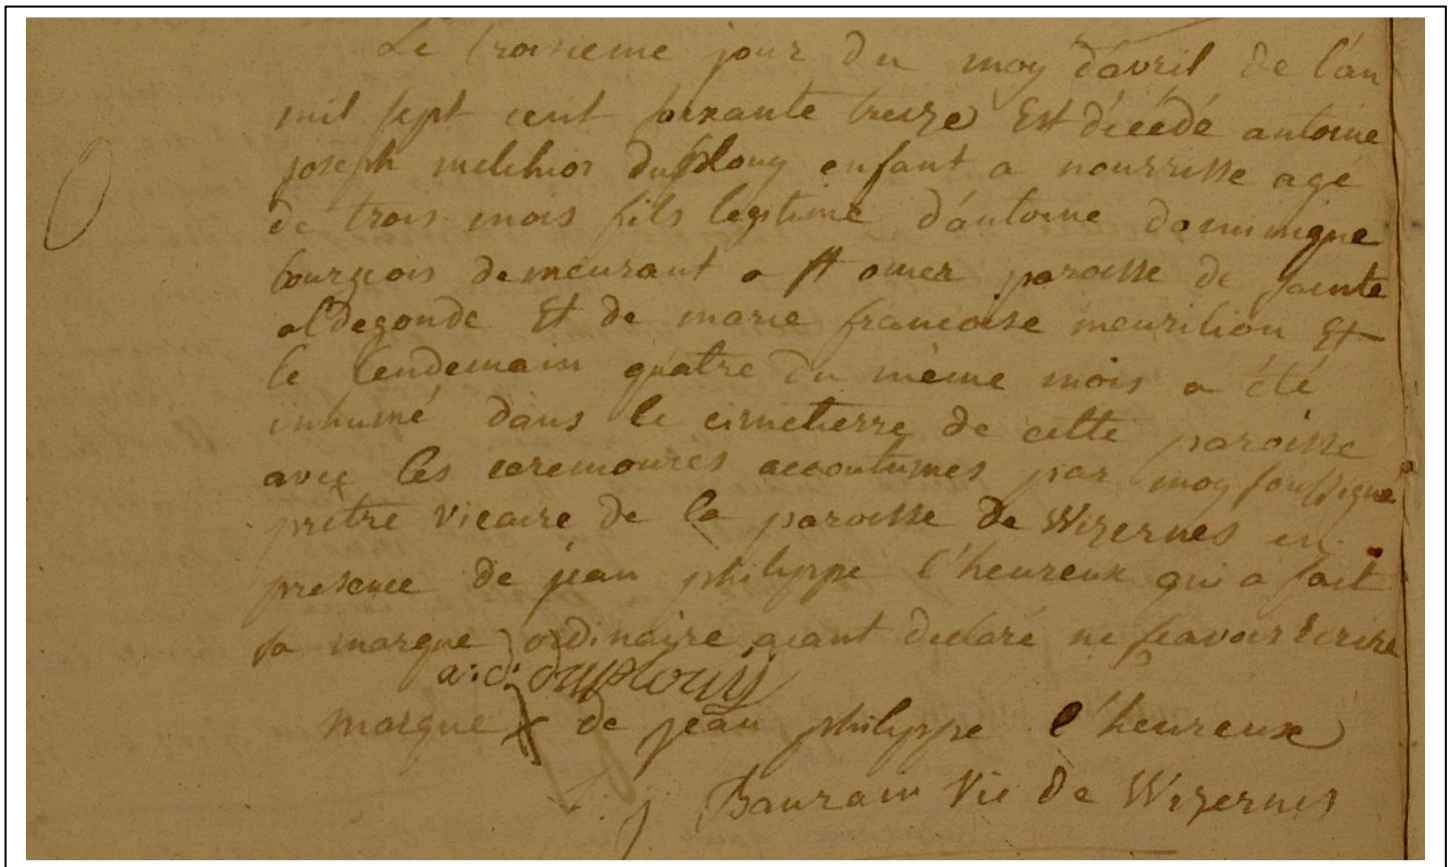 Le troisieme jour du moy d'avril de l'an
mil sept cent soixante treize Est décédé antoine
joseph melchior duplouy enfant a nourrisse agé
de trois mois fils legitime d'antoine dominique
bourgois demeurant a st omer paroisse de sainte
aldegonde Et de marie francoise meurilion Et
le lendemain quatre du même mois a été
inhumé dans le cimetierre de cette paroisse
avec les ceremonies accoutumes par moy soussigne
prêtre vicaire de la paroisse de Wizernes en
presence de jean philippe l'heureux qui a fait
sa marque ordinaire aiant declaré ne scavoir Ecrire
a: d: duplouy
marque x de jean philippe l'heureux
j Baurain Vic de Wizernes